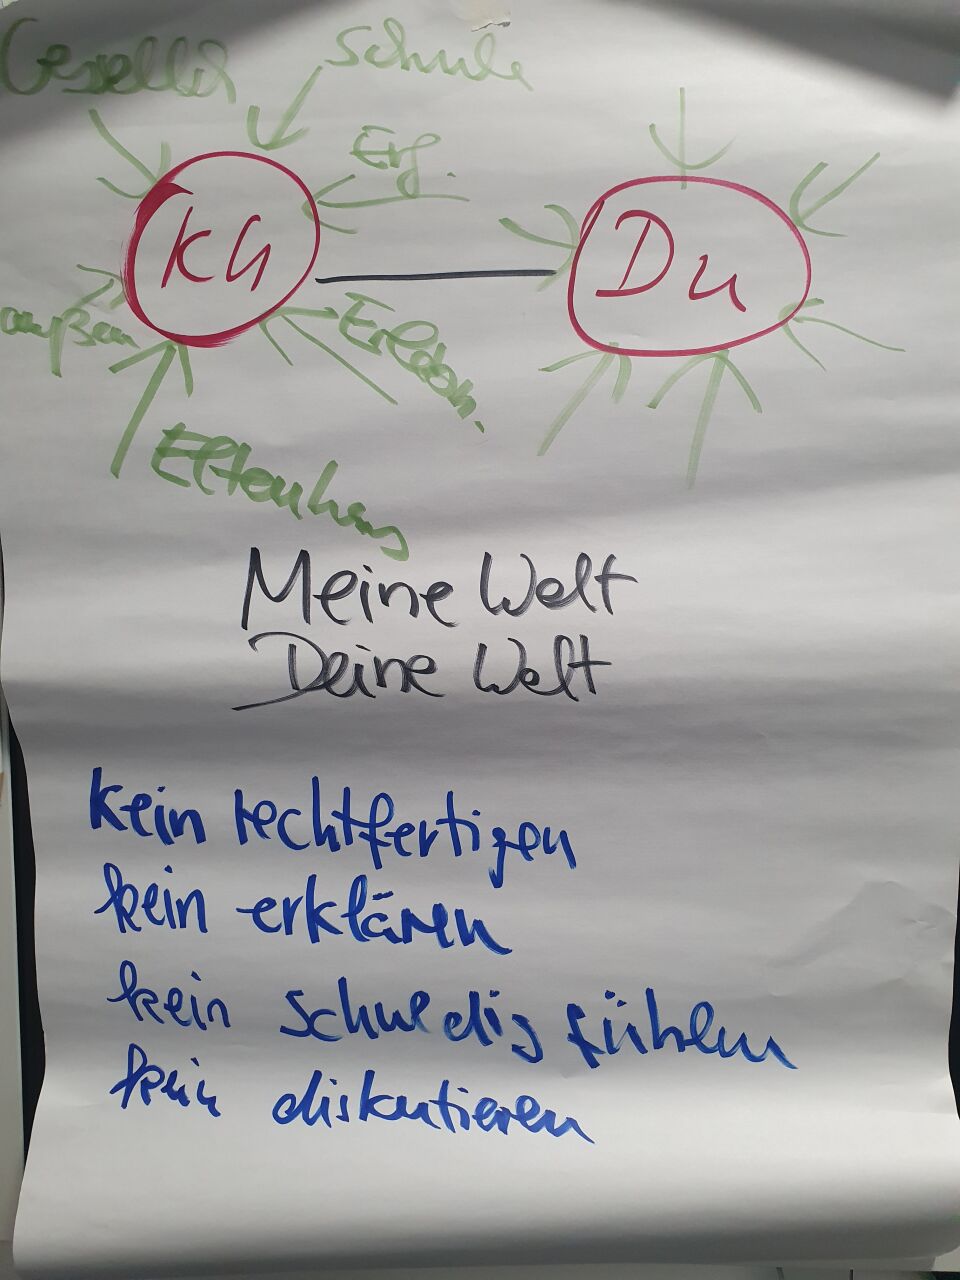 Gesellsch
Schule
Erf.
KG
Du
außen
Elternhaus
Meine Welt
Deine Welt
kein rechtfertigen
kein erklären
kein schuldig fühlen
kein diskutieren